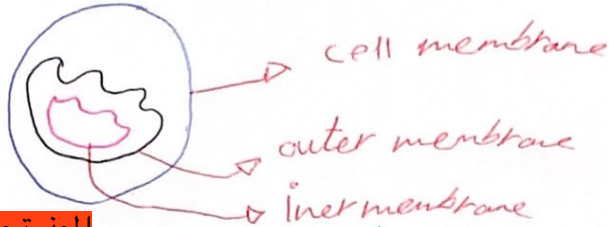 cell membrane
outer membrane
iner membrane